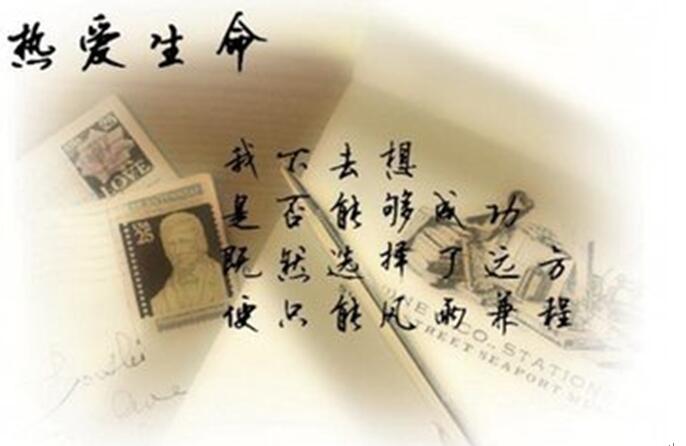 热爱生命
我不去想
是否能够成功
既然选择了远方
便只能风雨兼程
LOVE
25
NE & CO. STATION
STREET SEAPORT